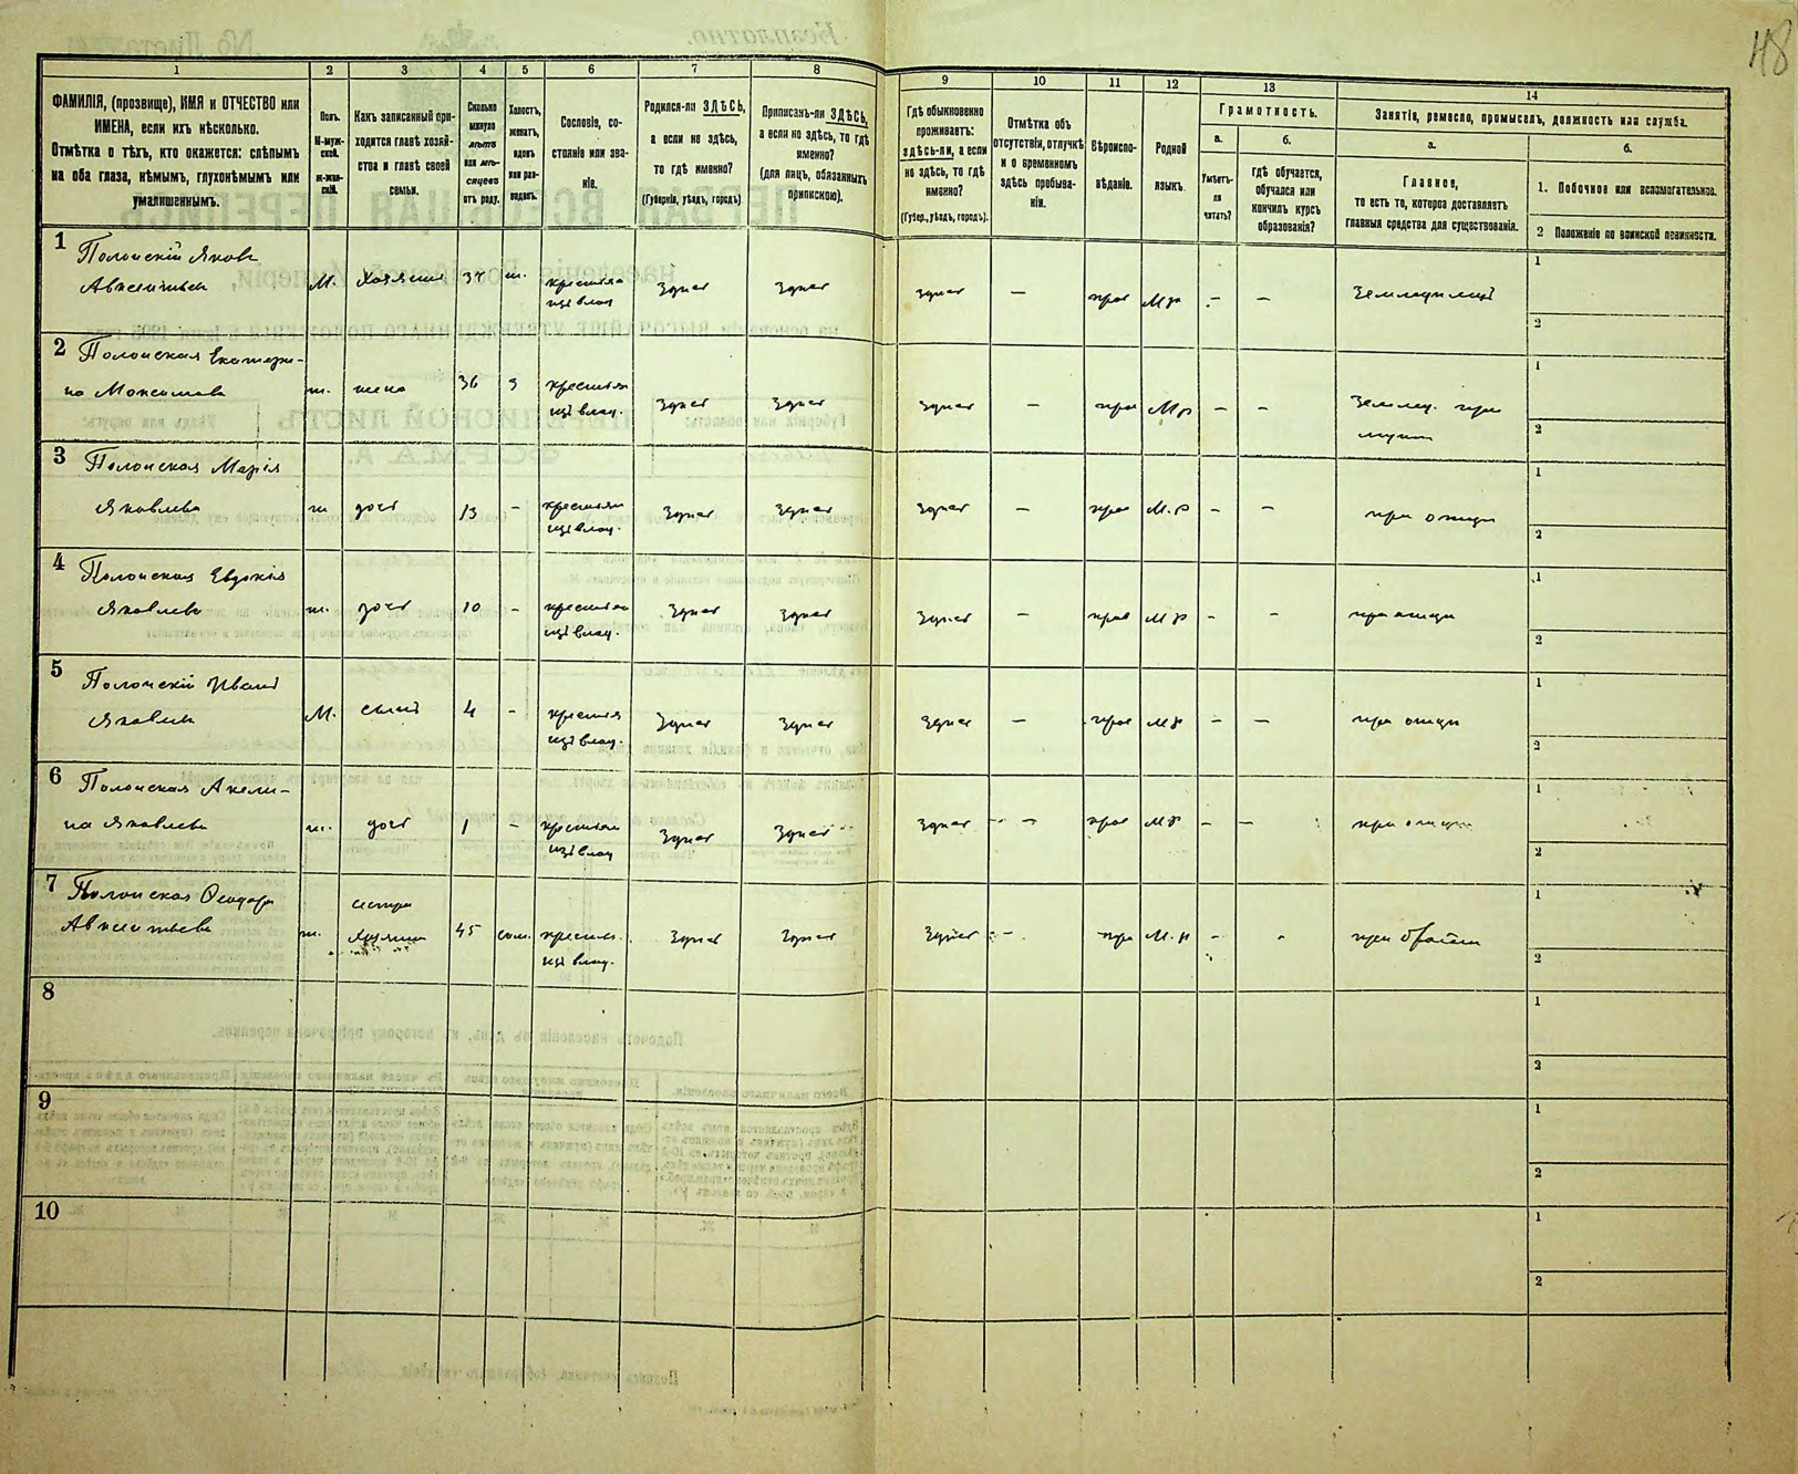 48
1
2
3
4
5
6
7
8
9
10
11
12
13
14
ФАМИЛІЯ, (прозвище), ИМЯ и ОТЧЕСТВО или
ИМЕНА, если ихъ нѣсколько.
Отмѣтка о тѣхъ, кто окажется: слѣпымъ
на оба глаза, нѣмымъ, глухонѣмымъ или
умалишеннымъ.
Полъ.
М-муж-
ской.
Ж-жен-
скій.
Какъ записанный при-
ходится главѣ хозяй-
ства и главѣ своей
семьи.
Сколько
минуло
лѣтъ
или мѣ-
сяцевъ
отъ роду.
Холостъ,
женатъ,
вдовъ
или раз-
веденъ.
Сословіе, со-
стояніе или зва-
ніе.
Родился-ли ЗДѢСЬ,
а если не здѣсь,
то гдѣ именно?
(Губернія, уѣздъ, городъ)
Приписанъ-ли ЗДѢСЬ,
а если не здѣсь, то гдѣ
именно?
(для лицъ, обязанныхъ
припискою).
Гдѣ обыкновенно
проживаетъ:
здѣсь-ли, а если
не здѣсь, то гдѣ
именно?
(Губер., уѣздъ, городъ).
Отмѣтка объ
отсутствіи, отлучкѣ
и о временномъ
здѣсь пребыва-
ніи.
Вѣроиспо-
вѣданіе.
Родной
языкъ.
Грамотность.
а.
Умѣетъ-
ли
читать?
б.
гдѣ обучается,
обучался или
кончилъ курсъ
образованія?
Занятіе, ремесло, промыселъ, должность или служба.
а.
Главное,
то есть то, которое доставляетъ
главныя средства для существованія.
б.
1. Побочное или вспомогательное.
2 Положеніе по воинской повинности.
1 Полонскій Яковъ
Авксентьевъ М. Хозяинъ 37 ж. крестьян
изъ влад здѣсь здѣсь здѣсь — прав Мр – – Земледѣлецъ 1 2
2 Полонская Екатери-
на Максимова ж. жена 36 з крестьян
изъ влад. здѣсь здѣсь здѣсь — прав Мр – – Землед. при
мужѣ 1 2
3 Полонская Марія
Яковлева ж дочь 13 - крестьян
изъ влад. здѣсь здѣсь здѣсь — прав М.р – – при отцѣ 1 2
4 Полонская Евдокія
Яковлева ж. дочь 10 - крестьян
изъ влад. здѣсь здѣсь здѣсь — прав Мр – – при отцѣ 1 2
5 Полонскій Иванъ
Яковлев М. сынъ 4 - крестьян
изъ влад. здѣсь здѣсь здѣсь — прав Мр – – при отцѣ 1 2
6 Полонская Акели-
на Яковлева ж. дочь 1 - крестьян
изъ влад здѣсь здѣсь здѣсь — прав Мр – – при отцѣ 1 2
7 Полонская Ѳеодора
Авксентьева ж. сестра
хозяина 45 крестьян.
изъ влад. здѣсь здѣсь здѣсь – пра М.р – - при братѣ 1 2
8 1 2
9 1 2
10 1 2